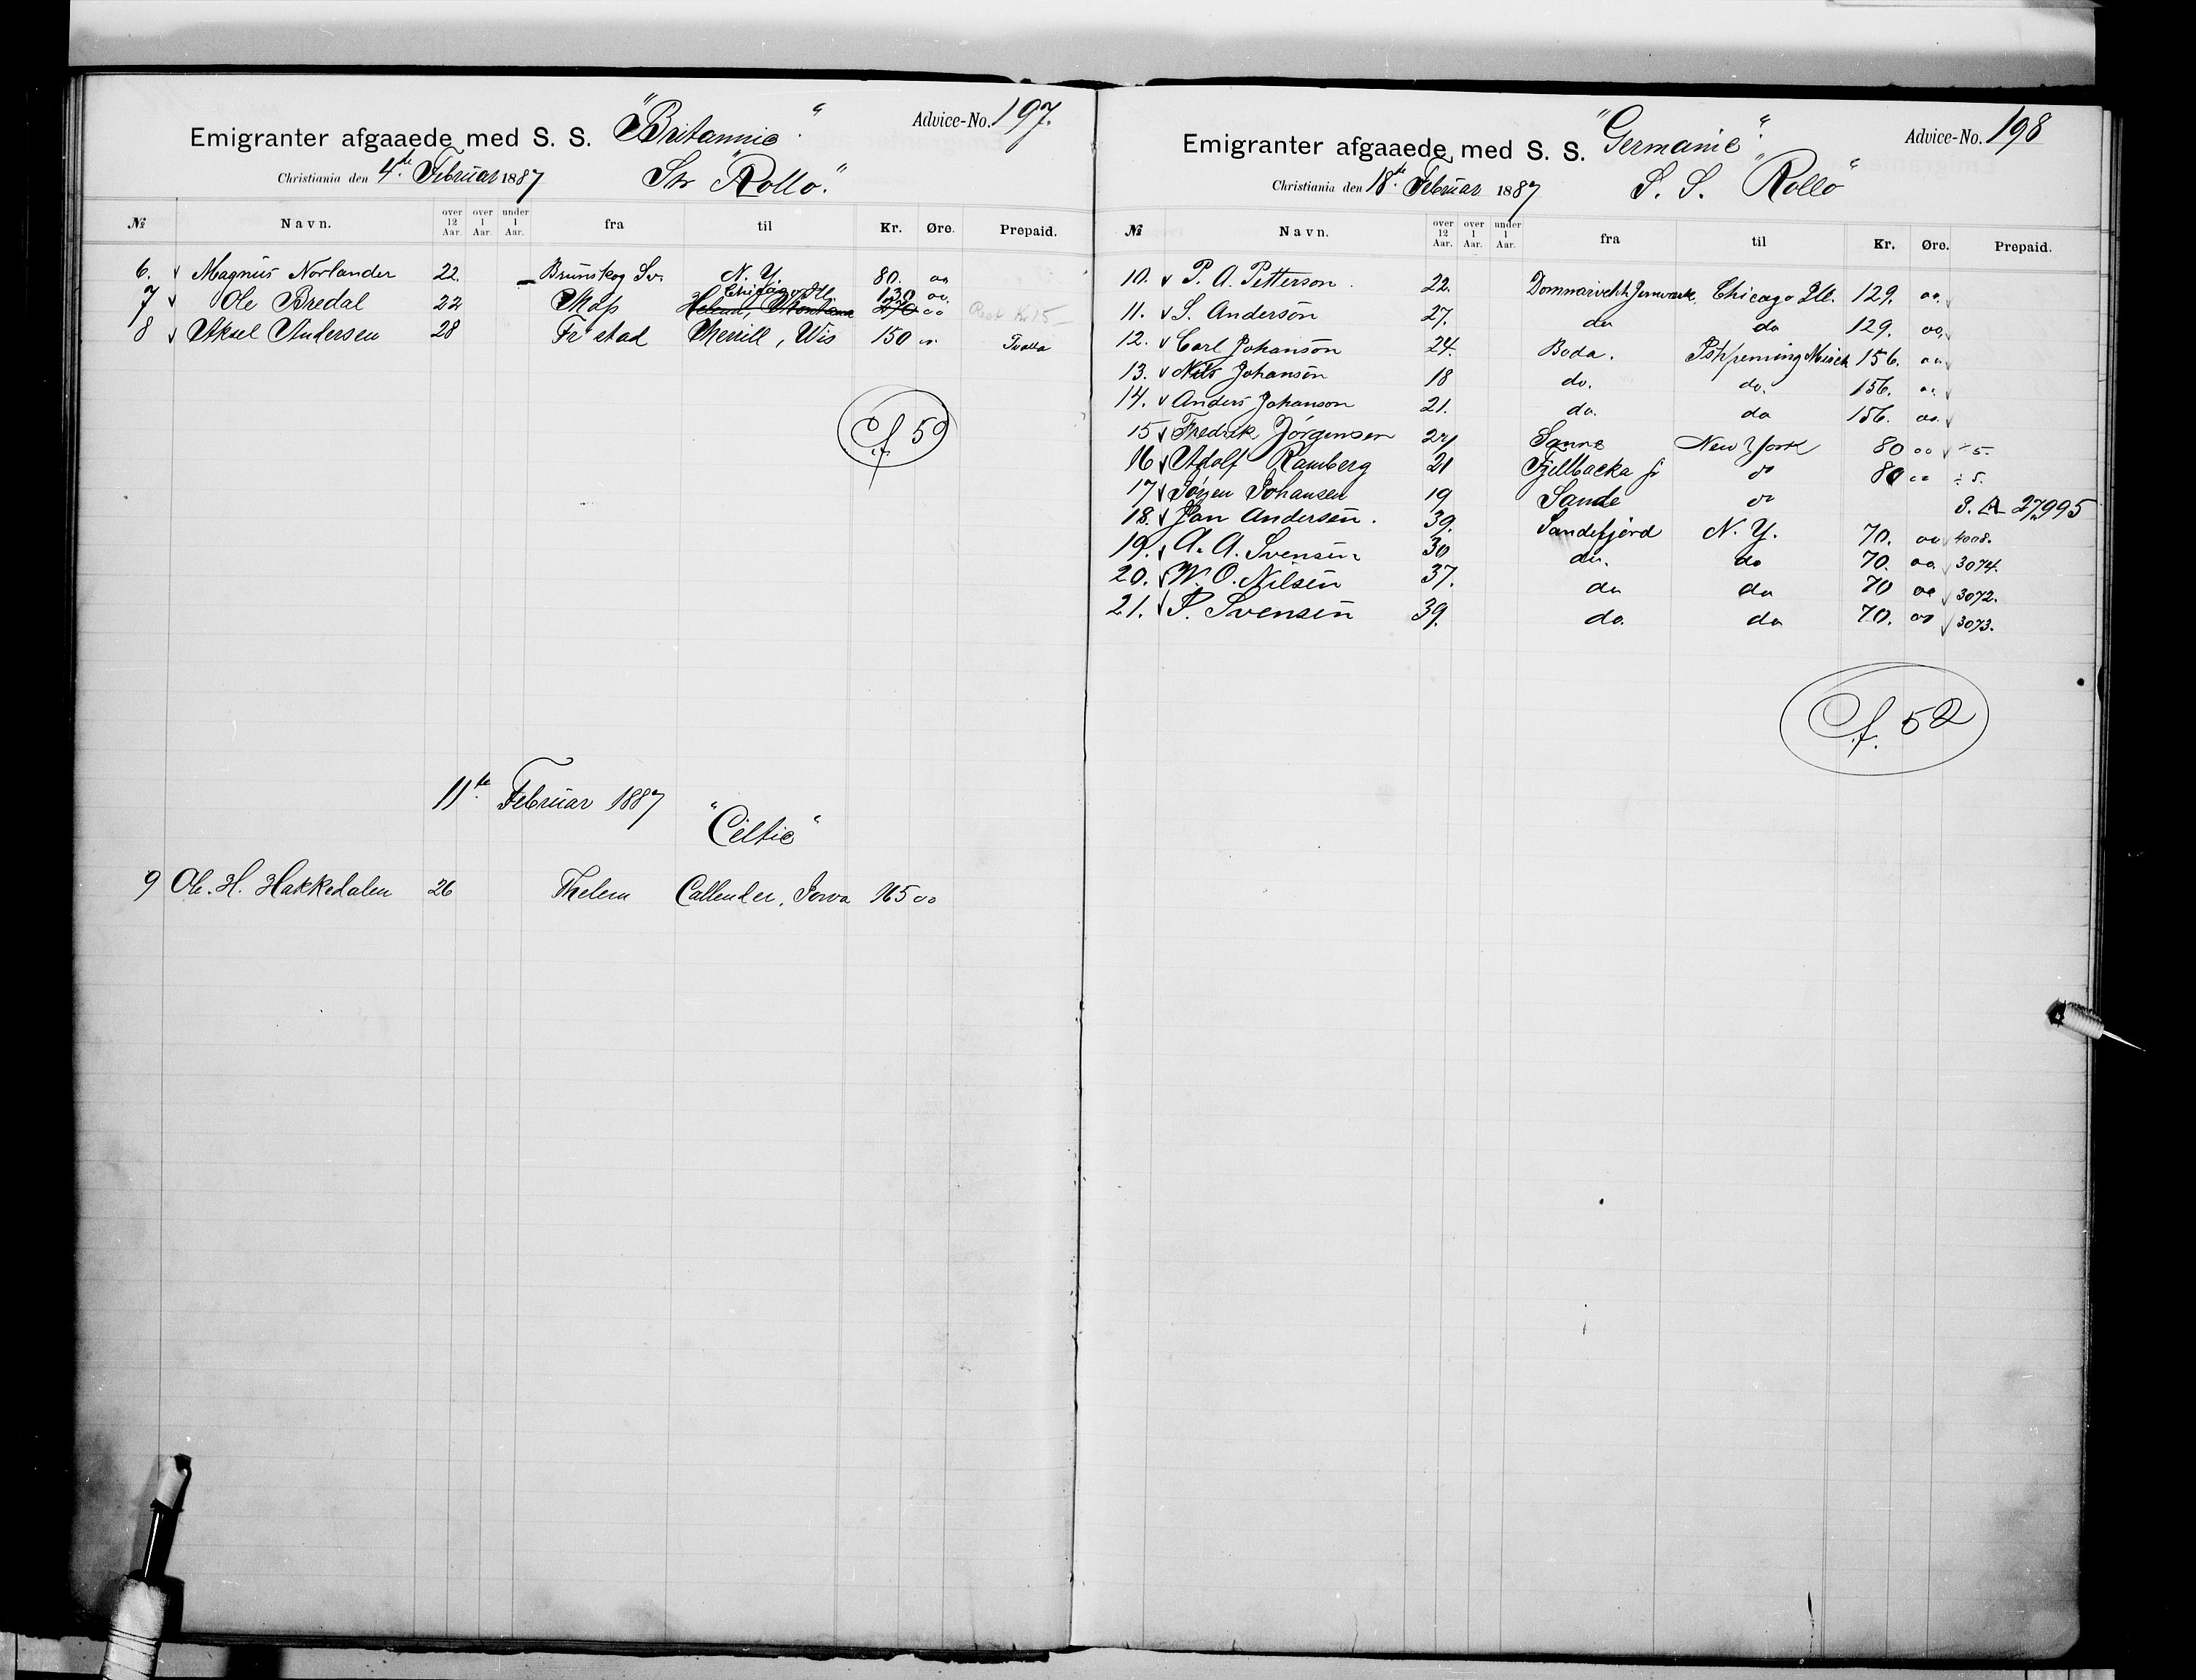 Emigranter afgaaede med S. S. "Britannic." Advice-No. 197.
Christiania den 4.de Februar 1887 Str "Rollo."
№ Navn. over 12 Aar. over 1 Aar. under 1 Aar. fra til Kr. Øre. Prepaid.
6. Magnus Norlander 22. Brunskog Sv. N. Y. 80. 00
7 Ole Bredal 22 Chicago Ill 130 00.
Helena, Montana 270 00 Rest Kr 15
8 Aksel Andersen 28 Fr stad Merrill, Wis 150
Cf 50
11te Februar 1887
"Celtic"
9 Ole. H. Hakkedalen 26 Thelem Callender, Iowa 165 00
Emigranter afgaaede med S. S. "Germanic". Advice-No. 198
Christiania den 18.de Februar 1887 S. S. "Rollo"
№ Navn. over 12 Aar. over 1 Aar. under 1 Aar. fra til Kr. Øre. Prepaid.
10. P. A. Petterson. 22. Chicago Ill. 129. 00
11. S. Anderson 27. do do 129. 00
12. Carl Johanson 24. Boda. Ishpeming Mich 156. 00
13. Nils Johanson 18 do. do. 156. 00
14. Anders Johanson 21. do. do 156. 00
15 Fredrik Jörgensen 24 Sanne New York 80 00 ÷ 5.
16 Adolf Ramberg 21 Fjellbacka do 80 00 ÷ 5.
17 Jörgen Johansen 19 Sande do 27995
18. Jan Andersen. 39. Sandefjord N. Y. 70. 00 4008.
19. A. A. Svensen 30 do. do 70. 00. 3074.
20. W. O. Nilsen 37. do do 70 00 3072.
21. P. Svensen 39. do. do 70. 00 3073.
Cf. 52